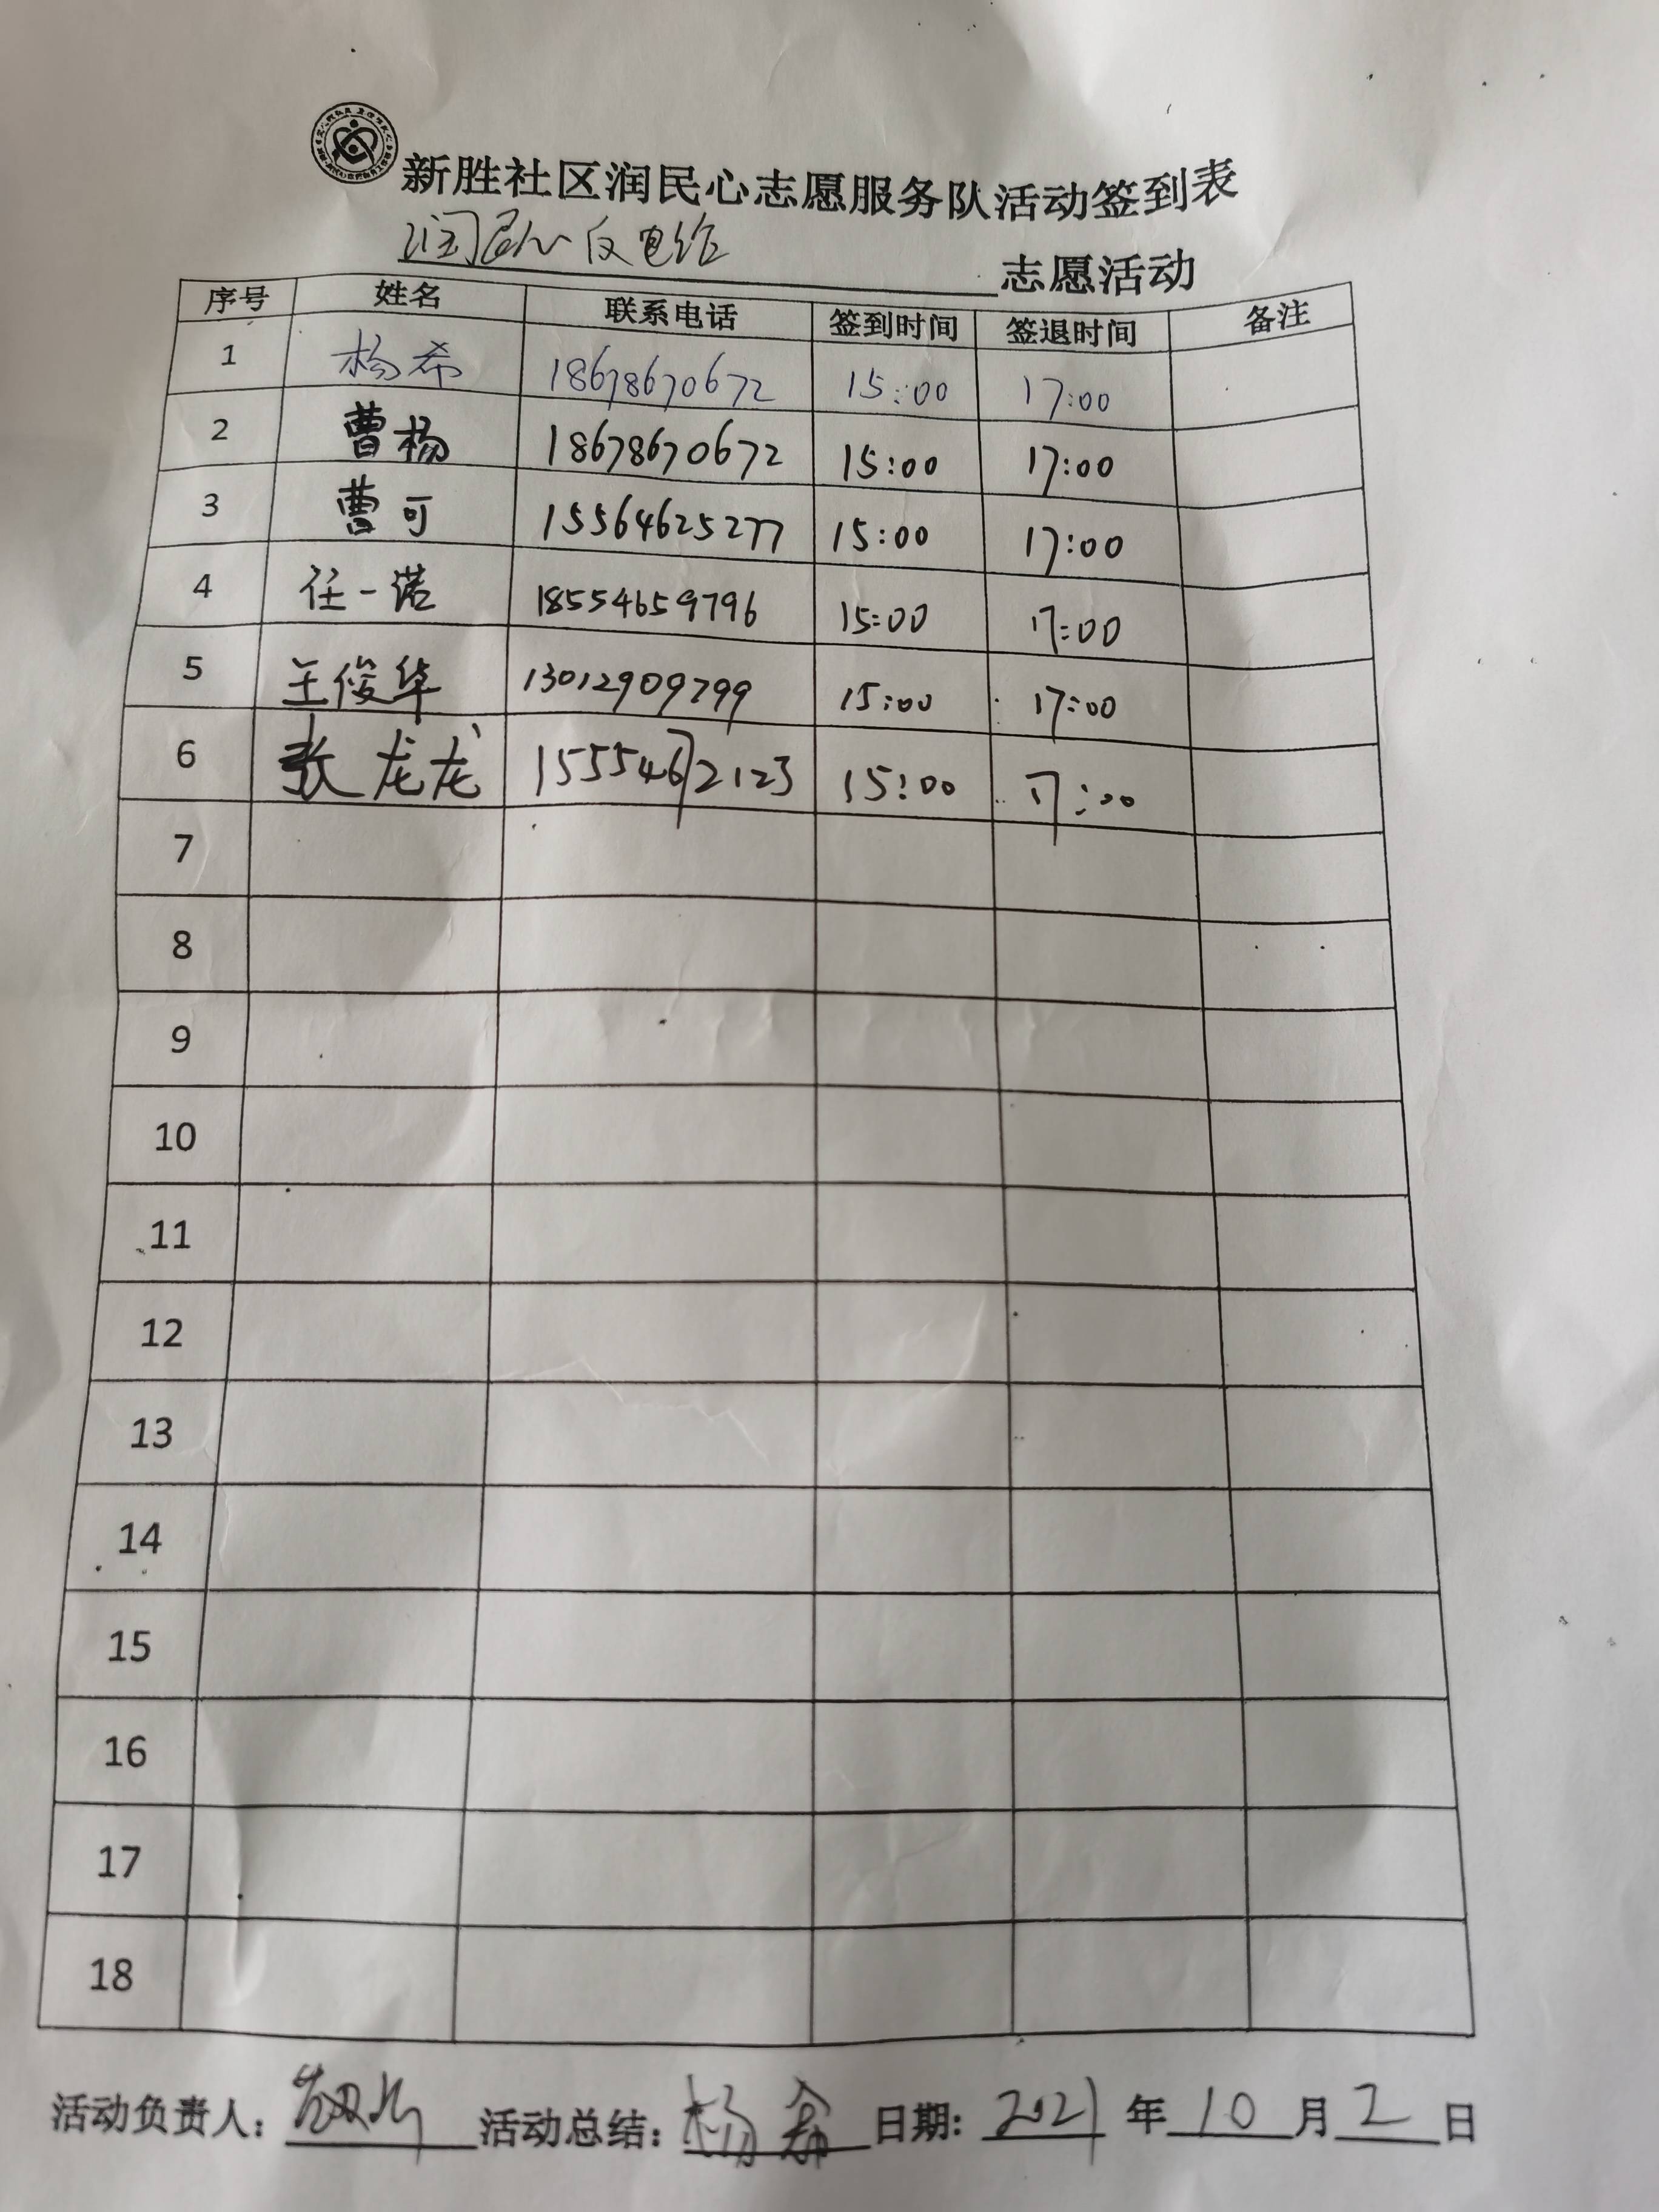 新胜社区润民心志愿服务队活动签到表
润民心反电诈 志愿活动
序号 姓名 联系电话 签到时间 签退时间 备注
1 杨希 18678670672 15:00 17:00
2 曹杨 18678670672 15:00 17:00
3 曹可 15564625277 15:00 17:00
4 任一诺 18554659796 15:00 17:00
5 王俊华 13012909799 15:00 17:00
6 张龙龙 15554672123 15:00 17:00
7
8
9
10
11
12
13
14
15
16
17
18
活动负责人: 活动总结: 杨希 日期: 2021 年 10 月 2 日